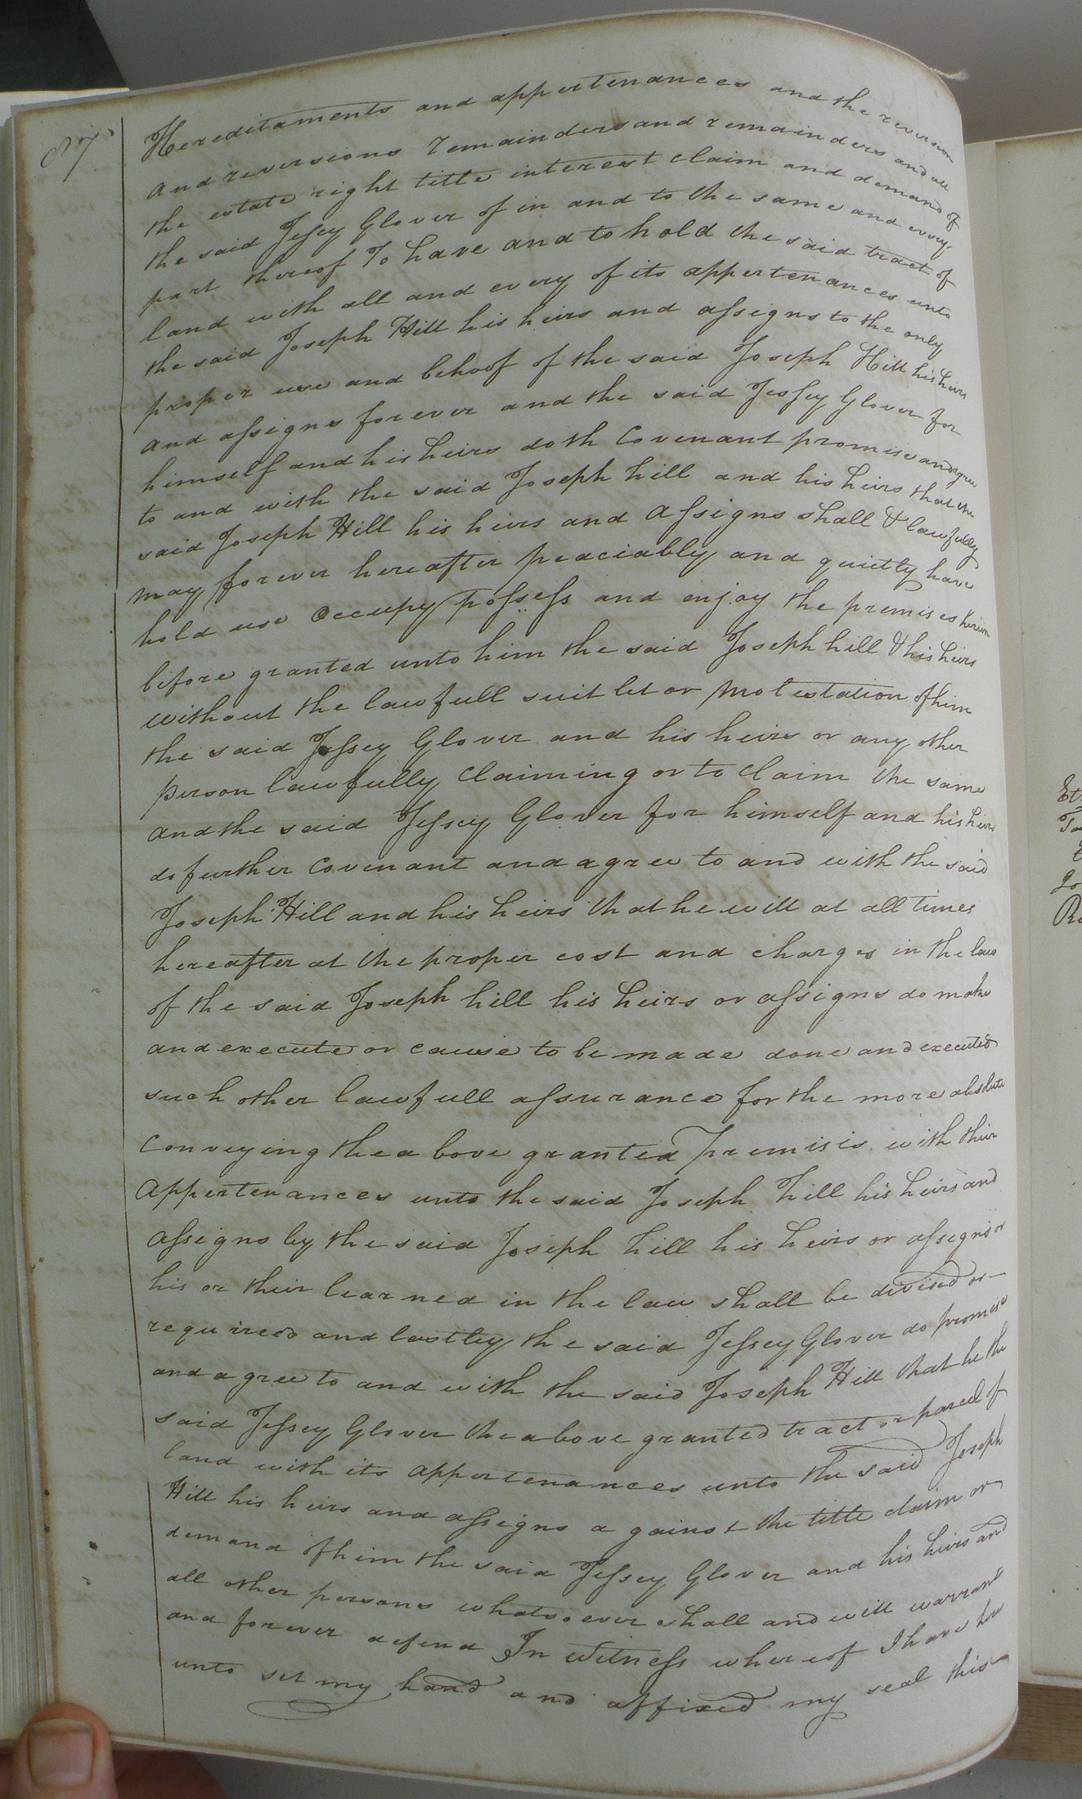 87
Hereditaments and appertenances and the reversion
and reversions remainders and remainders and all
the estate right title interest claim and demand of
the said Jessey Glover of in and to the same and every
part thereof To have and to hold the said tract of
land with all and every of its appertenances unto
the said Joseph Hill his heirs and assigns to the only
proper use and behoof of the said Joseph Hill his heirs
and assigns forever and the said Jessey Glover for
himself and his heirs doth Covenant promise and agree
to and with the said Joseph hill and his heirs that the
said Joseph Hill his heirs and Assigns shall & lawfully
may forever hereafter peaciably and quietly have
hold use Occupy possess and enjoy the premises herein
before granted unto him the said Joseph hill & his heirs
without the lawfull suit let or molestation of him
the said Jessey Glover and his heirs or any other
person lawfully Claiming or to Claim the same
and the said Jessey Glover for himself and his heirs
do further Covenant and agree to and with the said
Joseph Hill and his heirs that he will at all times
hereafter at the proper cost and charges in the law
of the said Joseph hill his heirs or assigns do make
and execute or cause to be made done and executed
such other lawfull assurance for the more absolute
Conveying the above granted premisis with their
Appertenances unto the said Joseph hill his heirs and
Assigns by the said Joseph hill his heirs or assigns or
his or their learned in the law shall be divised or
required and lastley the said Jessey Glover do promise
and agree to and with the said Joseph Hill that he the
said Jessey Glover the above granted tract or parcel of
land with its appertenances unto the said Joseph
Hill his heirs and assigns against the title claim or
demand of him the said Jessey Glover and his heirs and
all other persons whatsoever shall and will warrant
and forever defend In Witness whereof I have here
unto set my hand and affixed my seal this